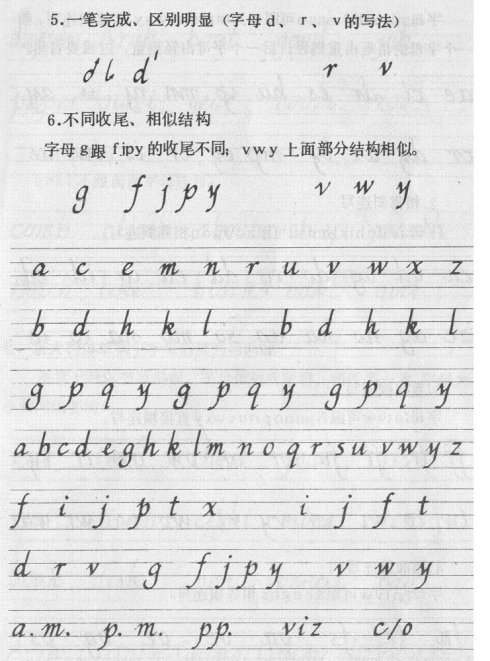 5.一笔完成、区别明显（字母 d 、 r 、v 的写法）
d l d r v
6.不同收尾、相似结构
字母 g 跟 fjpy 的收尾不同，vwy 上面部分结构相似。
g f j p y v w y
a c e m n r u v w x z
b d h k l b d h k l
g p q y g p q y g p q y
a b c d e g h k l m n o q r s u v w y z
f i j p t x i j f t
d r v g f j p y v w y
a.m. p.m. pp. viz c/o